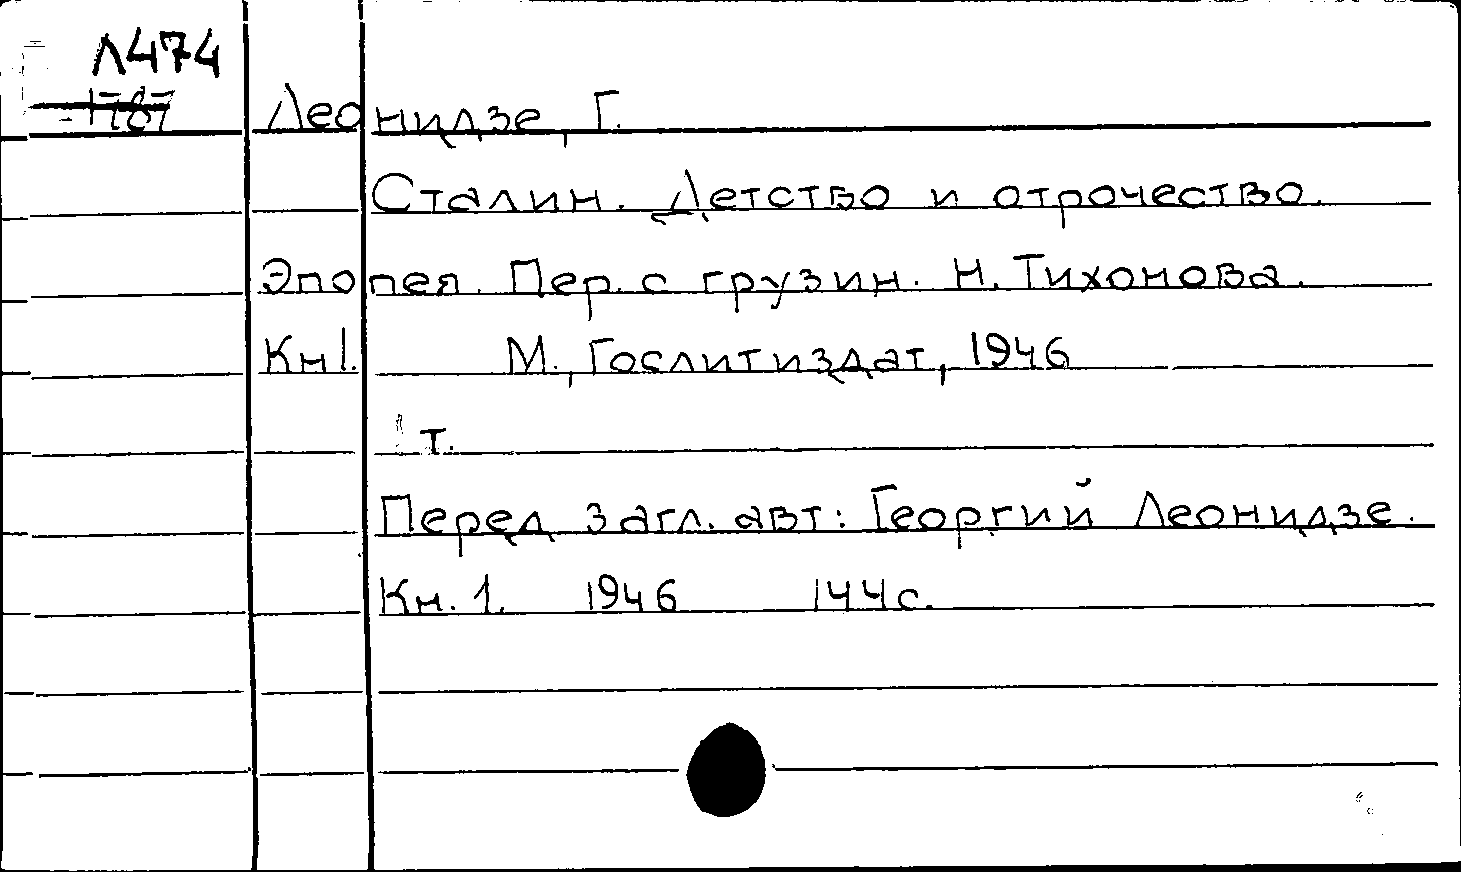 Л474
Леонидзе, Г.
Сталин. Детство и отрочество.
Эпопея. Пер. с грузин. Н. Тихонова.
Кн 1. М., Гослитиздат, 1946
т.
Перед загл. авт: Георгий Леонидзе.
Кн. 1. 1946 144 с.